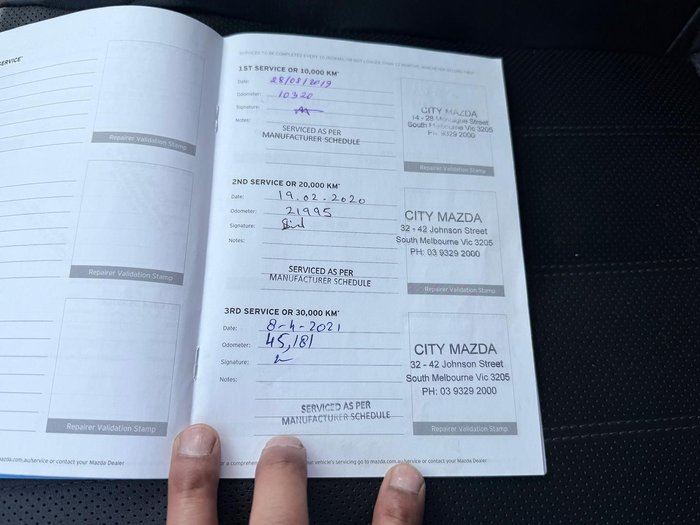 ERVICE*
Repairer Validation Stamp
Repairer Validation Stamp
Repairer Validation Stamp
azda.com.au/service or contact your Mazda Dealer
1ST SERVICE OR 10,000 KM*
Date: 28/08/2019
Odometer: 10320
Signature:
Notes:
SERVICED AS PER
MANUFACTURER SCHEDULE
CITY MAZDA
14 - 28 Montague Street
South Melbourne Vic 3205
PH: 9329 2000
Repairer Validation Stamp
2ND SERVICE OR 20,000 KM*
Date: 19.02.2020
Odometer: 21995
Signature:
Notes:
SERVICED AS PER
MANUFACTURER SCHEDULE
CITY MAZDA
32 - 42 Johnson Street
South Melbourne Vic 3205
PH: 03 9329 2000
Repairer Validation Stamp
3RD SERVICE OR 30,000 KM*
Date: 8-4-2021
Odometer: 45,181
Signature:
Notes:
SERVICED AS PER
MANUFACTURER SCHEDULE
CITY MAZDA
32 - 42 Johnson Street
South Melbourne Vic 3205
PH: 03 9329 2000
Repairer Validation Stamp
For a comprehen your vehicle's servicing go to mazda.com.au/service or contact your Mazda Dealer